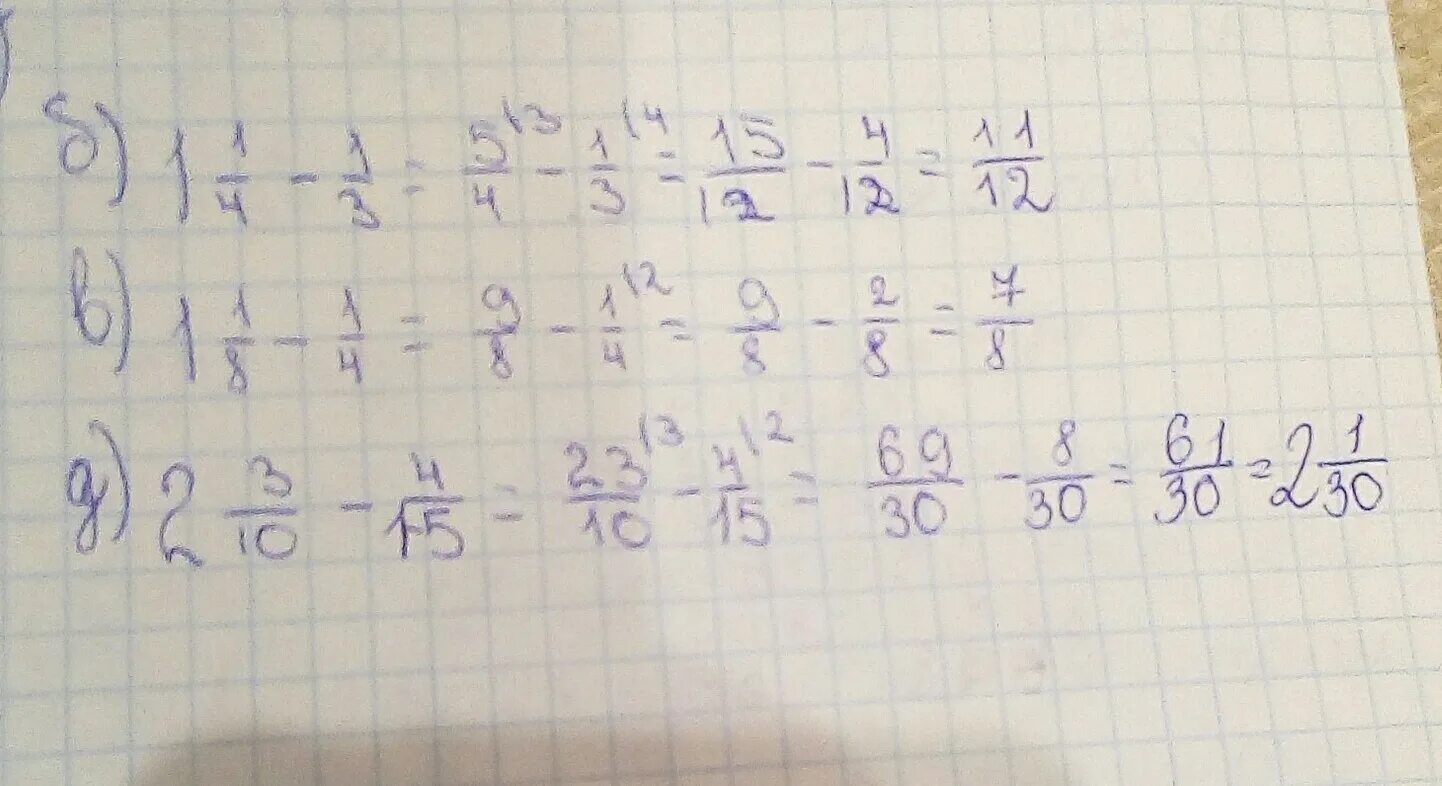 б) 1 1/4 - 1/3 = 5/4 \3 - 1/3 \4 = 15/12 - 4/12 = 11/12
в) 1 1/8 - 1/4 = 9/8 - 1/4 \2 = 9/8 - 2/8 = 7/8
д) 2 3/10 - 4/15 = 23/10 \3 - 4/15 \2 = 69/30 - 8/30 = 61/30 = 2 1/30